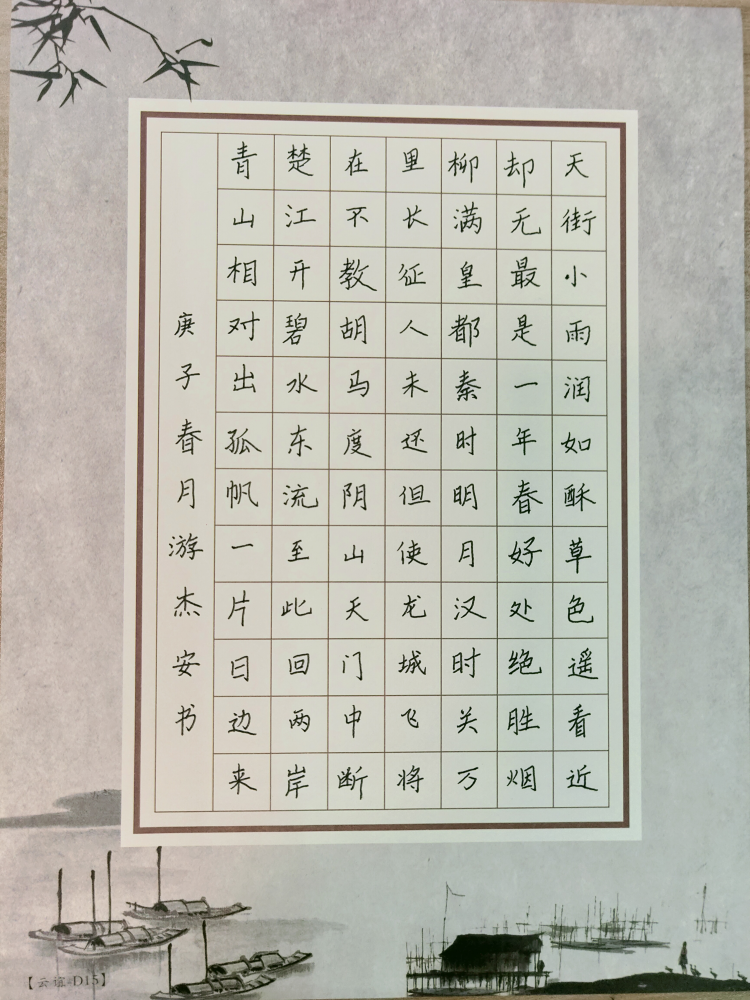 天街小雨润如酥草色遥看近
却无最是一年春好处绝胜烟
柳满皇都秦时明月汉时关万
里长征人未还但使龙城飞将
在不教胡马度阴山天门中断
楚江开碧水东流至此回两岸
青山相对出孤帆一片日边来
庚子春月游杰安书
【云谊D15】